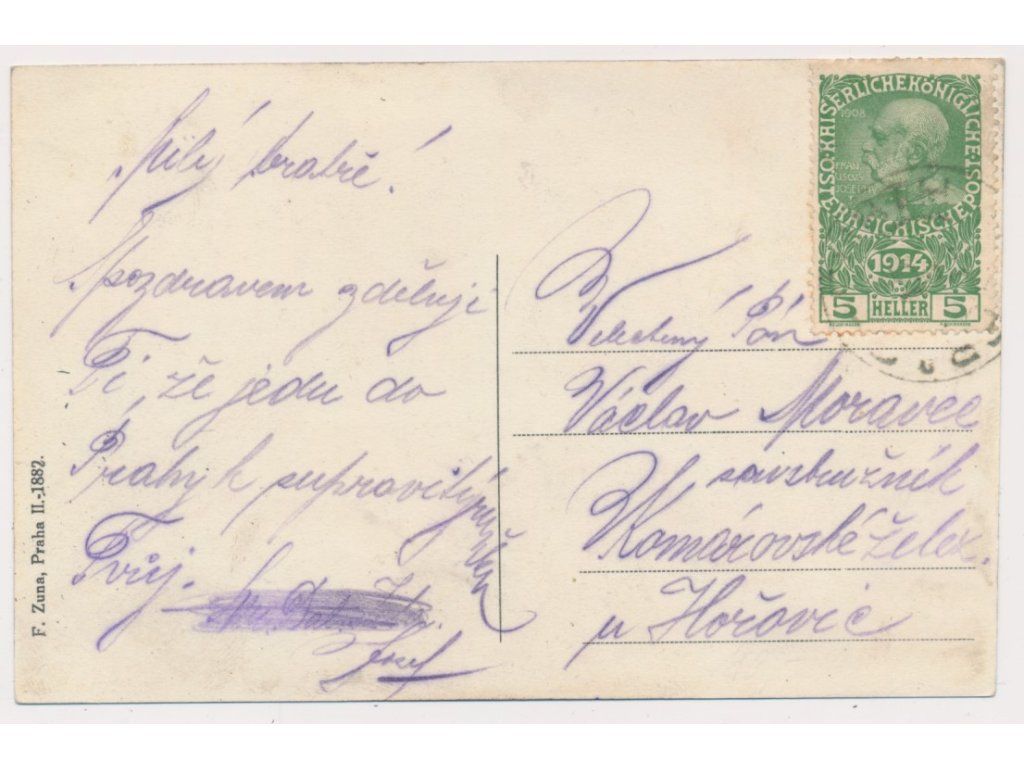 Milý bratře!
S pozdravem zděluji
Ti, že jedu do
Prahy k supravisitýruňku
Tvůj.
Josef
F. Zuna, Praha II.-1882.
Velectěný Pán
Václav Moravec
soustružník
Komárovské Želez.
u Hořovic
KAISERLICHE KÖNIGLICHE ÖSTERREICHISCHE POST
1908
FRAN
CISCVS
JOSEPH I
1914
5 HELLER 5